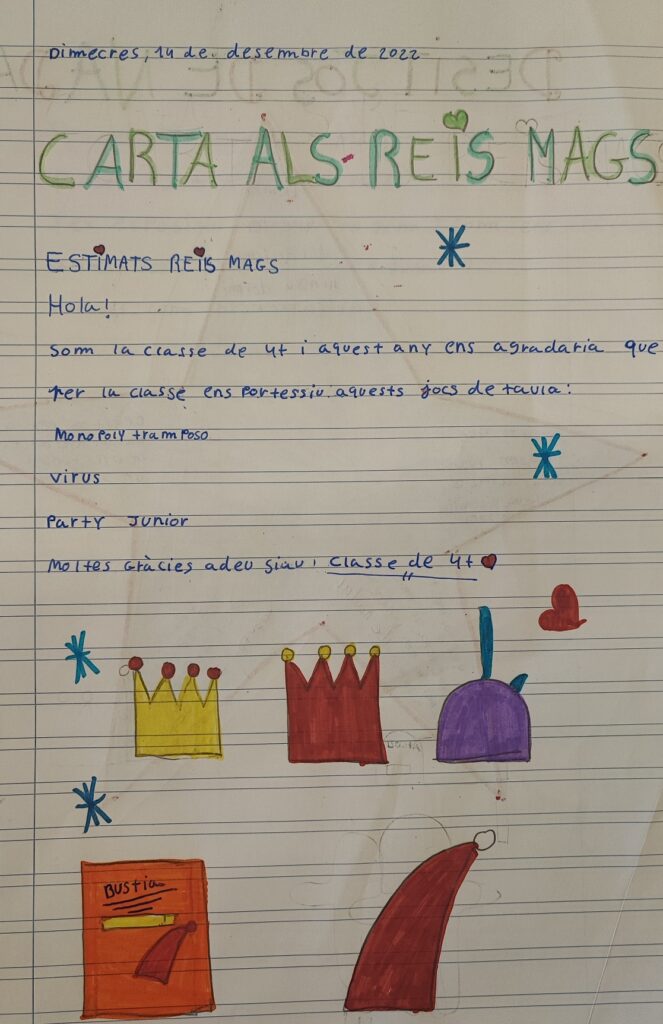 Dimecres, 14 de desembre de 2022
CARTA ALS REIS MAGS
ESTIMATS REIS MAGS
Hola!
Som la classe de 4t i aquest any ens agradaria que
per la classe ens portessiu aquests jocs de taula:
Monopoly tramposo
virus
Party Junior
Moltes Gràcies adeu siau, Classe de 4t
BUSTia